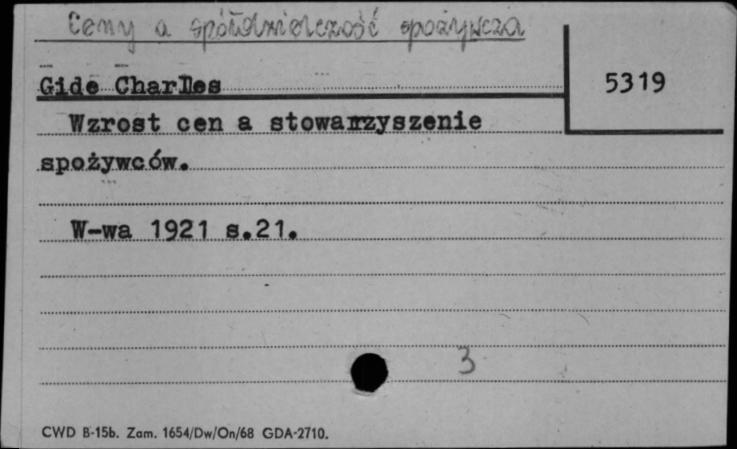 Ceny a spółdzielczość spożywcza
Gide Charles
5319
Wzrost cen a stowarzyszenie
spożywców.
W-wa 1921 s.21.
3
CWD B-15b. Zam. 1654/Dw/On/68 GDA-2710.